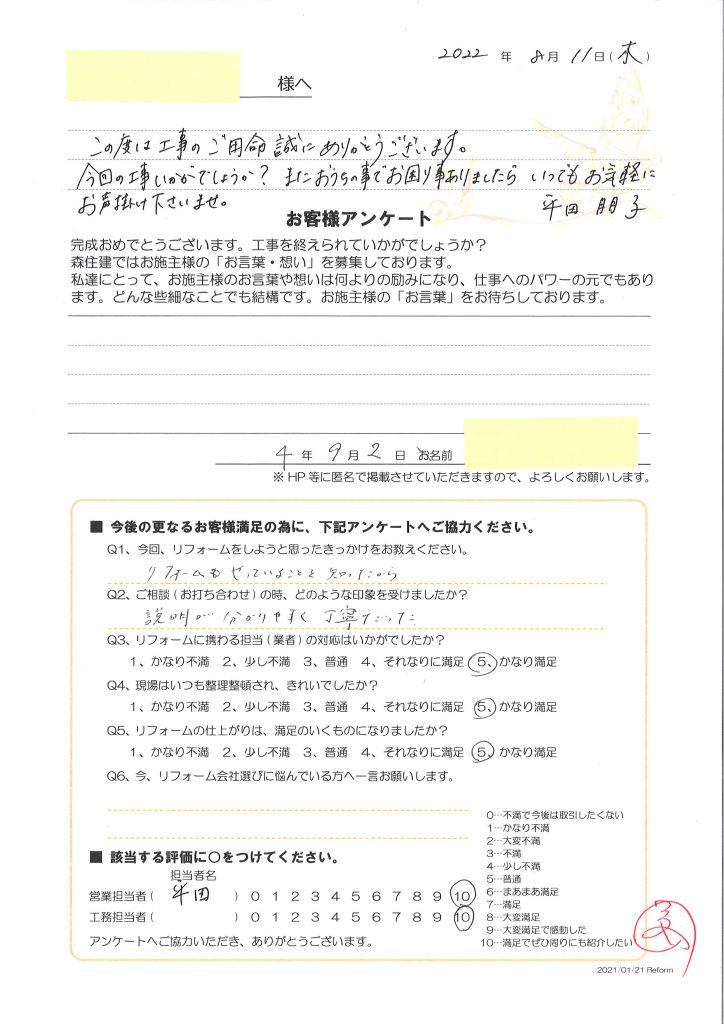 2022 年 8月 11日(木)
様へ
この度は工事のご用命誠にありがとうございます。
今回の工事いかがでしょうか？ またおうちの事でお困り事ありましたら いつでもお気軽に
お声掛け下さいませ。
平田 朋子
お客様アンケート
完成おめでとうございます。工事を終えられていかがでしょうか？
森住建ではお施主様の「お言葉・想い」を募集しております。
私達にとって、お施主様のお言葉や想いは何よりの励みになり、仕事へのパワーの元でもあり
ます。どんな些細なことでも結構です。お施主様の「お言葉」をお待ちしております。
4 年 9 月 2 日 お名前
※HP等に匿名で掲載させていただきますので、よろしくお願いします。
■ 今後の更なるお客様満足の為に、下記アンケートへご協力ください。
Q1、今回、リフォームをしようと思ったきっかけをお教えください。
リフォームもやっていることを知ったから
Q2、ご相談(お打ち合わせ)の時、どのような印象を受けましたか？
説明が分かりやすく丁寧だった
Q3、リフォームに携わる担当(業者)の対応はいかがでしたか？
1、かなり不満 2、少し不満 3、普通 4、それなりに満足 5、かなり満足
Q4、現場はいつも整理整頓され、きれいでしたか？
1、かなり不満 2、少し不満 3、普通 4、それなりに満足 5、かなり満足
Q5、リフォームの仕上がりは、満足のいくものになりましたか？
1、かなり不満 2、少し不満 3、普通 4、それなりに満足 5、かなり満足
Q6、今、リフォーム会社選びに悩んでいる方へ一言お願いします。
0…不満で今後は取引したくない
1…かなり不満
2…大変不満
3…不満
4…少し不満
5…普通
6…まあまあ満足
7…満足
8…大変満足
9…大変満足で感動した
10…満足でぜひ周りにも紹介したい
■ 該当する評価に○をつけてください。
担当者名
営業担当者( 平田 ) 0 1 2 3 4 5 6 7 8 9 10
工務担当者( ) 0 1 2 3 4 5 6 7 8 9 10
アンケートへご協力いただき、ありがとうございます。
2021/01/21 Reform